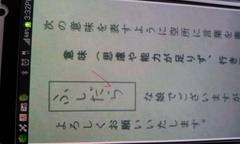 3:32PM
次の意味を表すように空所に言葉を書
意味(思慮や能力が足りず、行き
ふしだらな娘でございますが
よろしくお願いいたします。